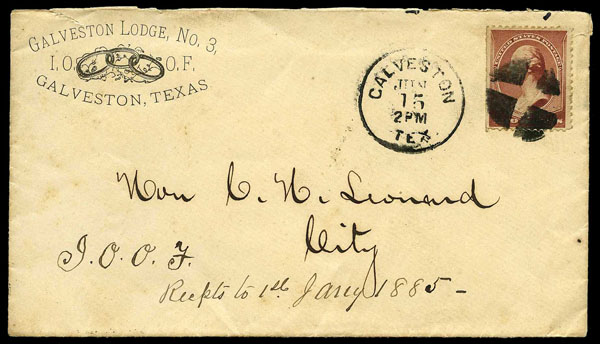 GALVESTON LODGE, NO. 3,
I.O. O.F.
GALVESTON, TEXAS
GALVESTON
JUN
15
2PM
TEX
UNITED STATES POSTAGE
Hon C. N. Leonard
City
I. O. O. F.
Recpts to 1st Jany 1885 -